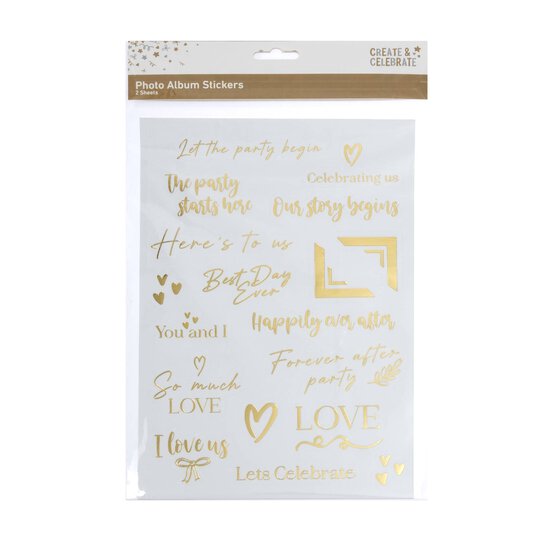 CREATE &
CELEBRATE
Photo Album Stickers
2 Sheets
Let the party begin
Celebrating us
The party
starts here
Our story begins
Here's to us
Best Day
Ever
You and I
Happily ever after
Forever after
party
So much
LOVE
LOVE
I love us
Lets Celebrate